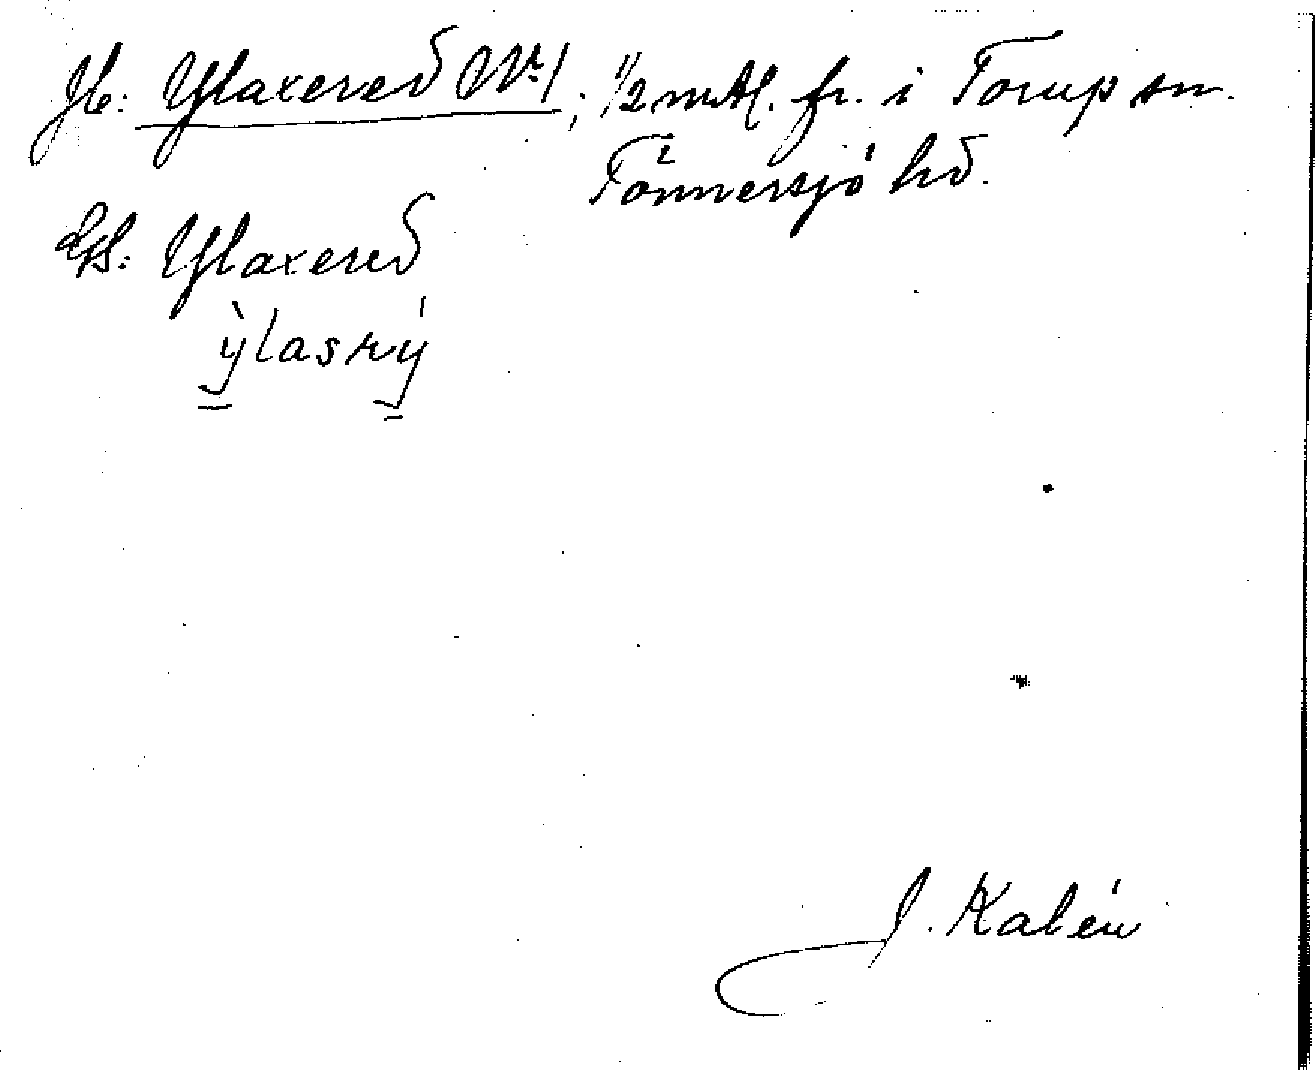 Jb: Ylaxered No 1; 1/2 mtl. fr. i Torup sn.
Tönnersjö hd.
Gs: Ylaxered
ỳlasrý
J. Kalén